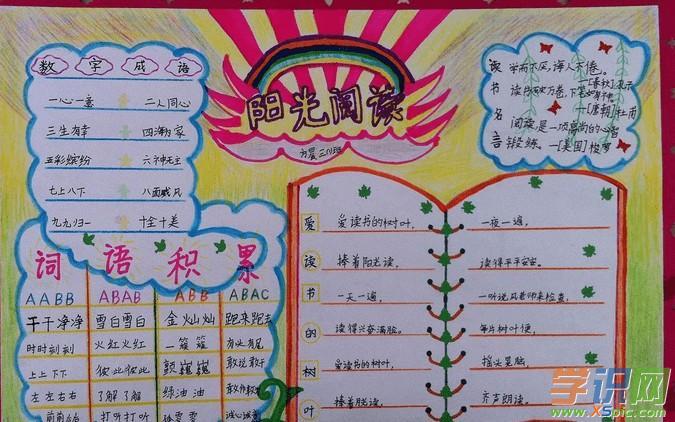 数字成语
一心一意 二人同心
三生有幸 四海为家
五彩缤纷 六神无主
七上八下 八面威风
九九归一 十全十美
阳光阅读
三(1)班
读书名言
学而不厌,诲人不倦。
—[春秋]孔子
读书破万卷,下笔如有神。
—[唐朝]杜甫
阅读是一项高尚的心智
锻炼。—[美国]梭罗
词语积累
AABB ABAB ABAC
干干净净 雪白雪白 金灿灿 跑来跑去
时时刻刻 火红火红 一簇簇 有头有尾
上上下下 彼此彼此 颤巍巍 敢说敢干
左左右右 了解了解 绿油油
打听打听 诚心诚意
爱读书的树叶
爱读书的树叶,
捧着阳光读,
一天一遍,
读得兴奋满脸。
爱读书的树叶,
捧着脸读,
一夜一遍,
读得平平安安。
一听说风老师来检查,
每片树叶便,
摇头晃脑,
齐声朗读。
学识网
www.XSpic.com